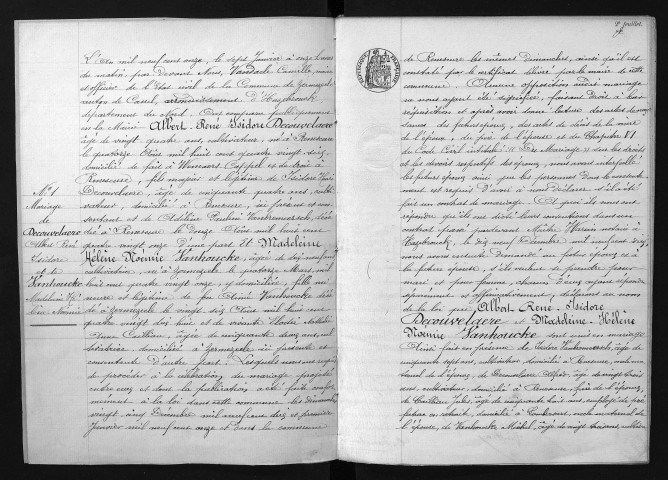 L'An mil neuf cent onze, le sept Janvier à onze heures
du matin, par devant Nous, Vandaele Camille, maire
et officier de l'état civil de la Commune de Zermezeele
canton de Cassel, arrondissement d'Hazebrouck,
département du Nord. Ont comparu publiquement
en la Mairie Albert René Isidore Decouvelaere
âgé de vingt quatre ans, cultivateur, né à Renescure
le quatorze mil huit cent quatre vingt six,
domicilié de fait à Wemaers Cappel et de droit à
Renescure, fils majeur et légitime de Isidore
Decouvelaere, âgé de cinquante quatre ans, culti
vateur, domicilié à Renescure, ici présent et con
sentant et de Adeline Vankemmersch, décé
dée à Renescure le Douze mil huit cent
quatre vingt onze D'une part Et Madeleine
Hélène Noémie Vanhoucke, âgée de dix neuf ans
cultivatrice, née à Zermezeele le quatorze Mars, mil
huit cent quatre vingt onze, y domiciliée, fille mi
neure et légitime de feu Vanhoucke décé
dé à Zermezeele le vingt mil huit cent
quatre vingt dix huit et de vivante Elodie
âgée de cinquante cinq ans, cul
tivatrice domiciliée à Zermezeele ici présente et
consentante D'autre part. Lesquels nous ont requis
de procéder à la célébration du mariage projeté
entre eux et dont la publication a été faite confor
mément à la loi dans cette commune les dimanches
vingt cinq Décembre mil neuf cent dix et premier
Janvier mil neuf cent onze et dans la commune
N° 1
Mariage
de
Decouvelaere
Albert René
Isidore
et de
Vanhoucke
Madeleine Hé
lène Noémie
2e feuillet
de Renescure les mêmes Dimanches, ainsi qu'il est
constaté par le certificat délivré par le maire de cette
commune. Aucune opposition audit mariage
ne nous ayant été signifiée, faisant droit à leur
réquisition et après avoir donné lecture des actes de nais
sance des futurs époux, des actes de décès de la mère
de l'époux, du père de l'épouse et du Chapitre VI
du Code Civil intitulé « Du Mariage » sur les droits
et les devoirs respectifs des époux, nous avons interpellé
les futurs époux ainsi que les personnes dont le consente
ment est requis d'avoir à nous déclarer s'il a été
fait un contrat de mariage. Et qui ils nous ont
répondu qu'ils ont réglé leurs conventions dans un
contrat passé pardevant Maître notaire à
Hazebrouck, le dix neuf Décembre mil neuf cent dix,
nous avons ensuite demandé au futur époux et à
la future épouse, s'ils veulent se prendre pour
mari et pour femme, chacun d'eux ayant répondu
séparément et affirmativement, déclarons au nom
de la loi que Albert René Isidore
Decouvelaere et Madeleine Hélène
Noémie Vanhoucke sont unis en mariage
Ainsi fait en présence de Isidore âgé de
cinquante sept ans, cultivateur domicilié à Renescure, oncle ma
ternel de l'époux, de Decouvelaere Alfred, âgé de vingt trois
ans, cultivateur, domicilié à Renescure, frère de l'époux,
de Jules, âgé de cinquante huit ans, employé de pré
fecture en retraite, domicilié à oncle maternel de
l'épouse, de Vanhoucke Michel, âgé de vingt trois ans, cultiva